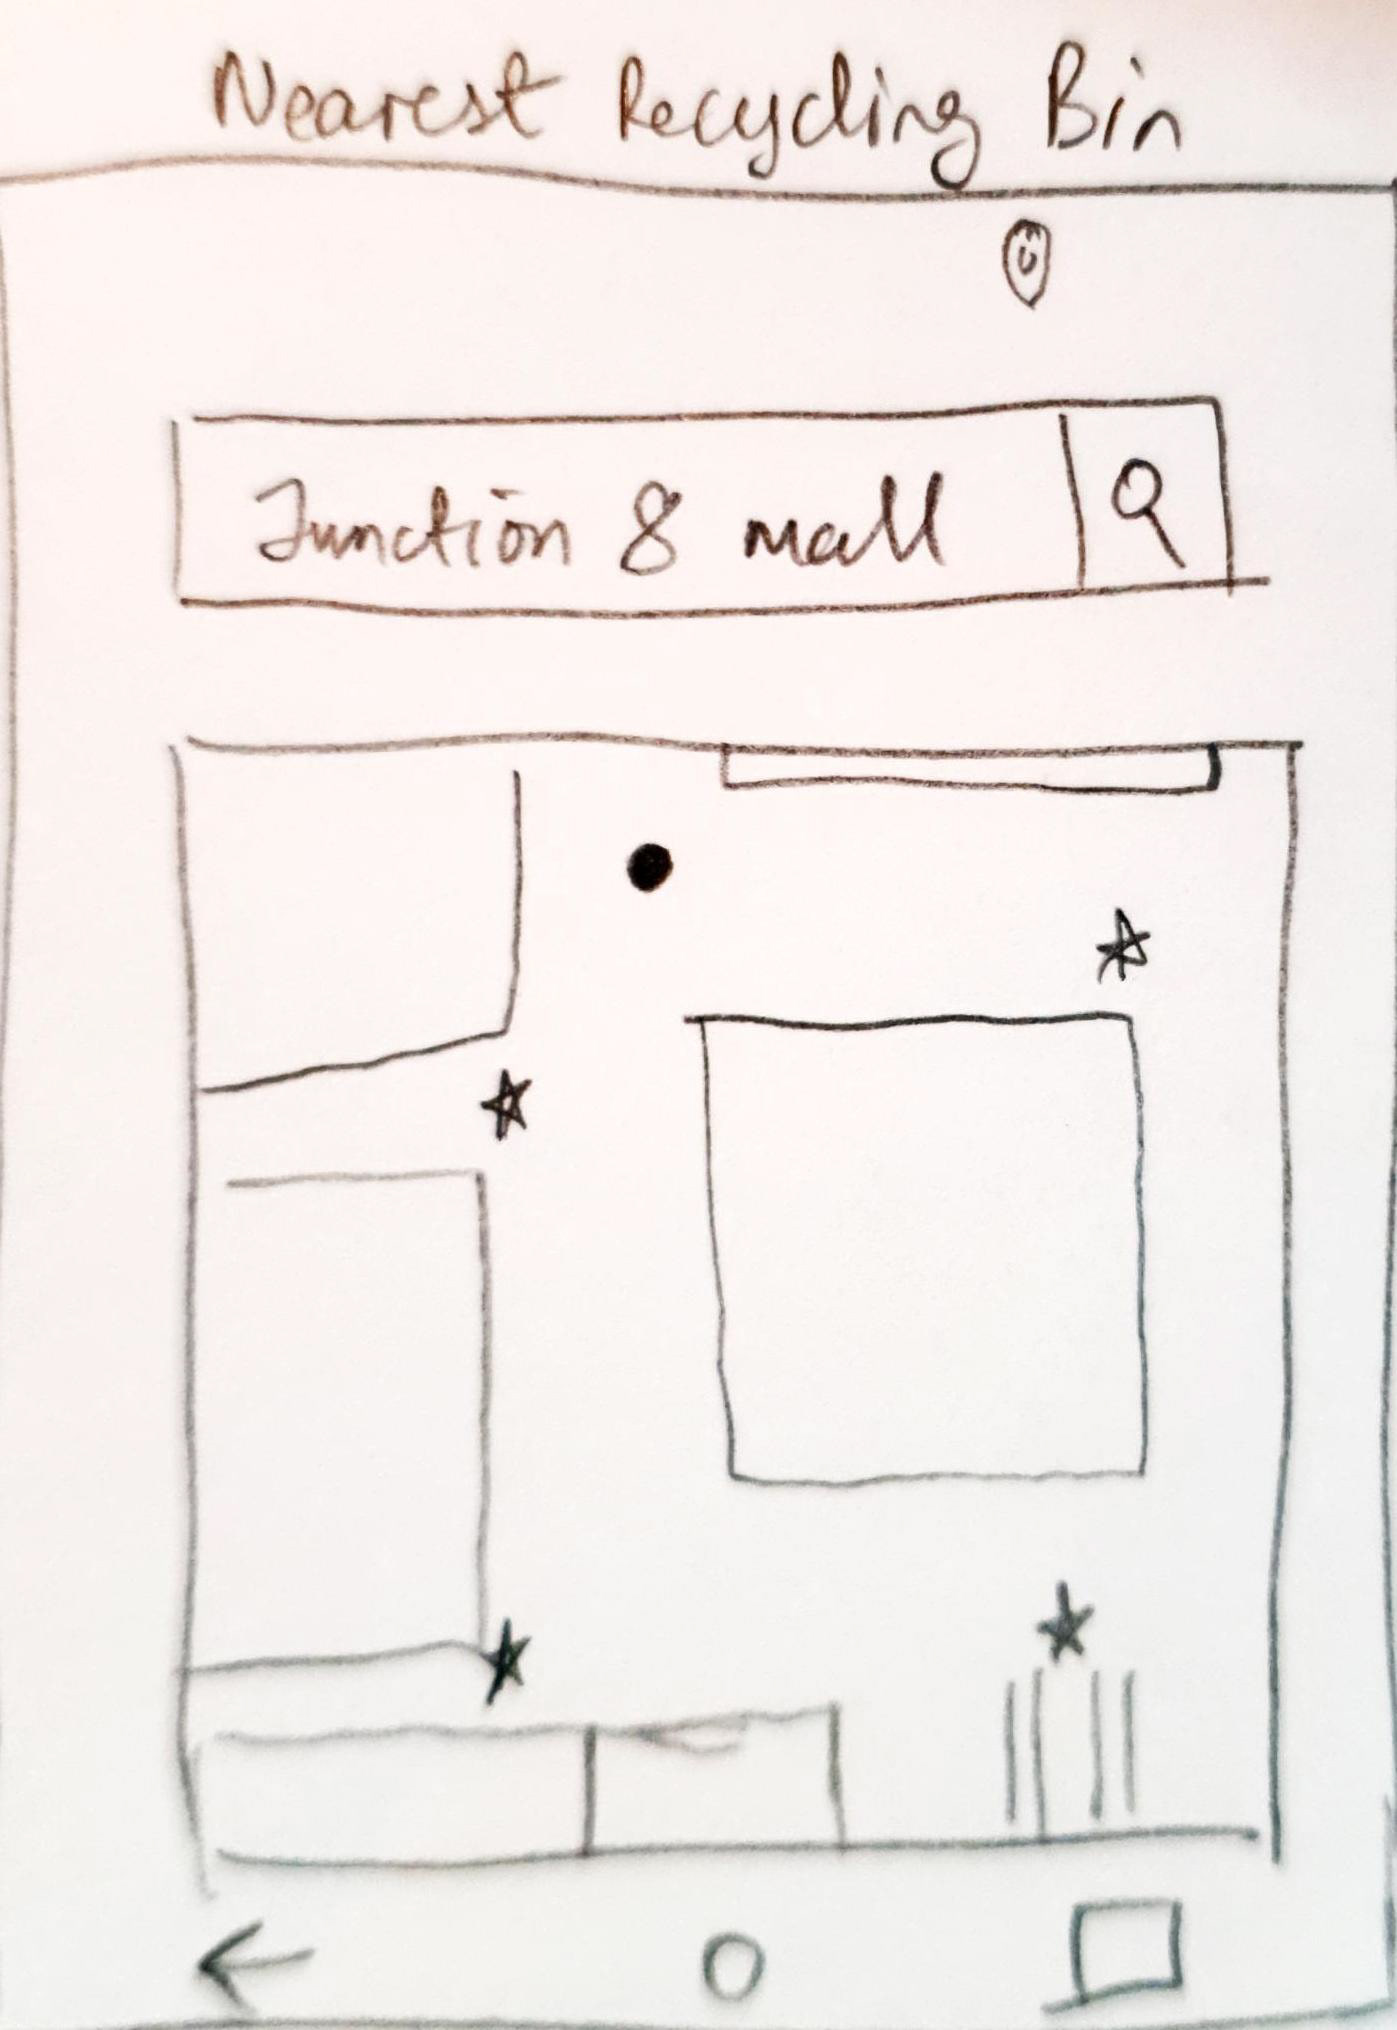 Nearest Recycling Bin
Junction 8 mall